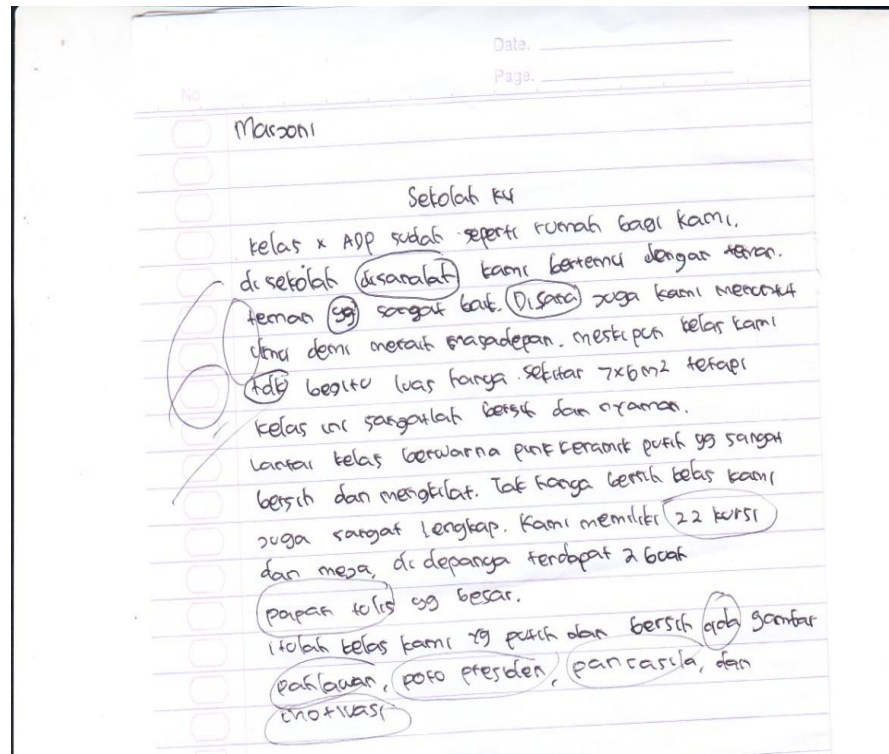 Date.
Page.
No
Marzoni
Sekolah ku
kelas x ADP sudah seperti rumah bagi kami.
di sekolah disanalah kami bertemu dengan teman.
teman yg sangat baik. Disana juga kami menuntut
ilmu demi meraih masadepan. meskipun kelas kami
tdk begitu luas hanya sekitar 7x6m2 tetapi
kelas ini sangatlah bersih dan nyaman.
Lantai kelas berwarna pink keramik putih yg sangat
bersih dan mengkilat. Tak hanya bersih kelas kami
juga sangat lengkap. Kami memiliki 22 kursi
dan meja, di depanya terdapat 2 buah
papan tulis yg besar.
itulah kelas kami yg putih dan bersih ada gambar
pahlawan, poto presiden, pancasila, dan
motivasi